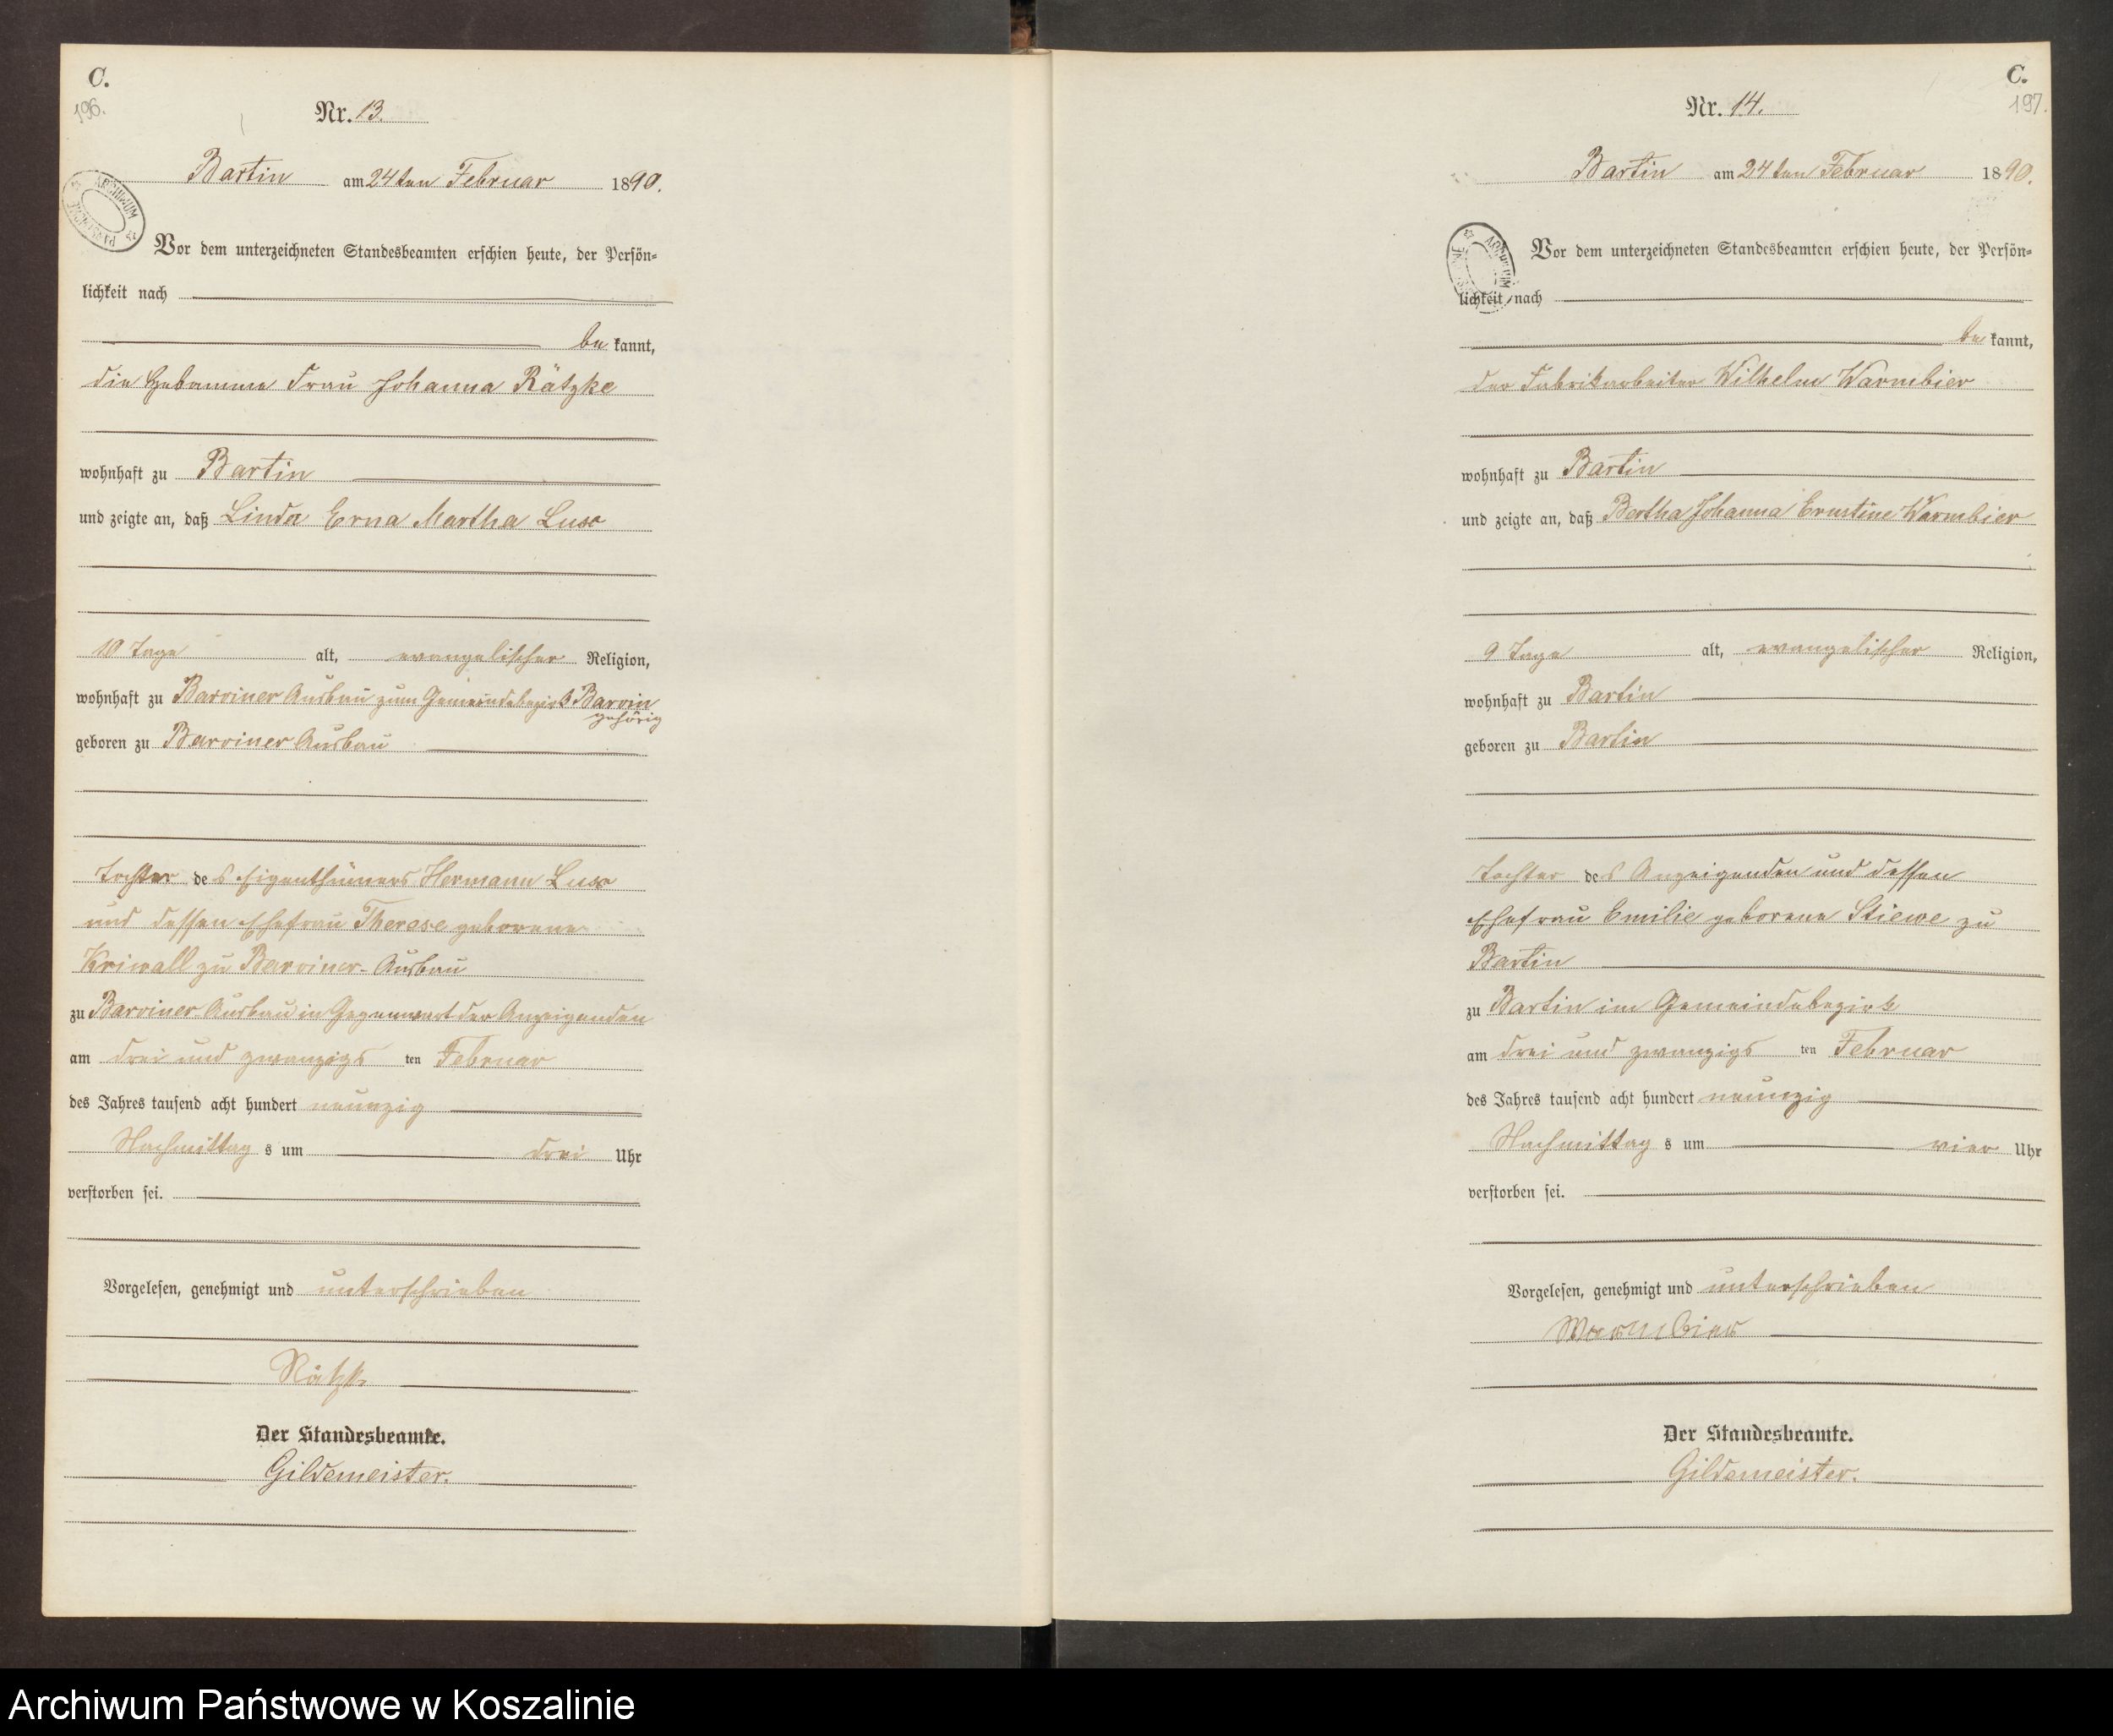 C.
196.
Nr. 13.
Bartin am 24ten Februar 1890.
ARCHIWUM
Vor dem unterzeichneten Standesbeamten erschien heute, der Persön=
lichkeit nach
be kannt,
die Hebamme Frau Johanna Rätzke
wohnhaft zu Bartin
und zeigte an, daß Linda Erna Martha
10 Tage alt, evangelischer Religion,
wohnhaft zu Barviner Ausbau zum Gemeindebezirk Barvin
gehörig
geboren zu Barviner Ausbau
Tochter des Eigenthümers Hermann
und dessen Ehefrau Therese geborene
Kriwall zu Barviner-Ausbau
zu Barviner-Ausbau in Gegenwart der Anzeigenden
am drei und zwanzigs ten Februar
des Jahres tausend acht hundert neunzig
Nachmittag s um drei Uhr
verstorben sei.
Vorgelesen, genehmigt und unterschrieben
Der Standesbeamte.
Gildemeister.
C.
197.
Nr. 14.
Bartin am 24ten Februar 1890.
Vor dem unterzeichneten Standesbeamten erschien heute, der Persön=
lichkeit nach
be kannt,
der Fabrikarbeiter Wilhelm Warmbier
wohnhaft zu Bartin
und zeigte an, daß Bertha Johanna Ernstine Warmbier
9 Tage alt, evangelischer Religion,
wohnhaft zu Bartin
geboren zu Bartin
Tochter des Anzeigenden und dessen
Ehefrau Emilie geborene Stiewe zu
Bartin
zu Bartin im Gemeindebezirk
am drei und zwanzigs ten Februar
des Jahres tausend acht hundert neunzig
Nachmittag s um vier Uhr
verstorben sei.
Vorgelesen, genehmigt und unterschrieben
Warmbier
Der Standesbeamte.
Gildemeister.
Archiwum Państwowe w Koszalinie